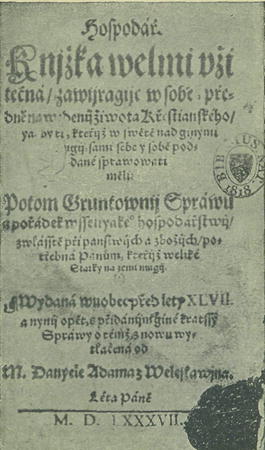 Hospodář.
Knijžka welmi vži
tečná / zawijragijc w sobě / pře-
dně nawedenij žiwota Křestianského /
ya byti / kteřijž w swětě nad ginými
sami sebe y sobě pod-
dané sprawowati
měli:
Potom Gruntownij Spráwu
a pořádek wsselyakého hospodářstwij /
zwlásstě při panstwijch a zbožijch / po-
třebná Pánům / kteřijž weliké
Statky na zemi magij.
Wydaná w uobec před lety XLVII.
a nynij opět, s přidánijm giné kratssý
Spráwy o témž, z nowu wy-
tlačená od
M. Danyele Adama z Weleslawijna.
Léta Páně
M. D. LXXXVII.
BIB
1818